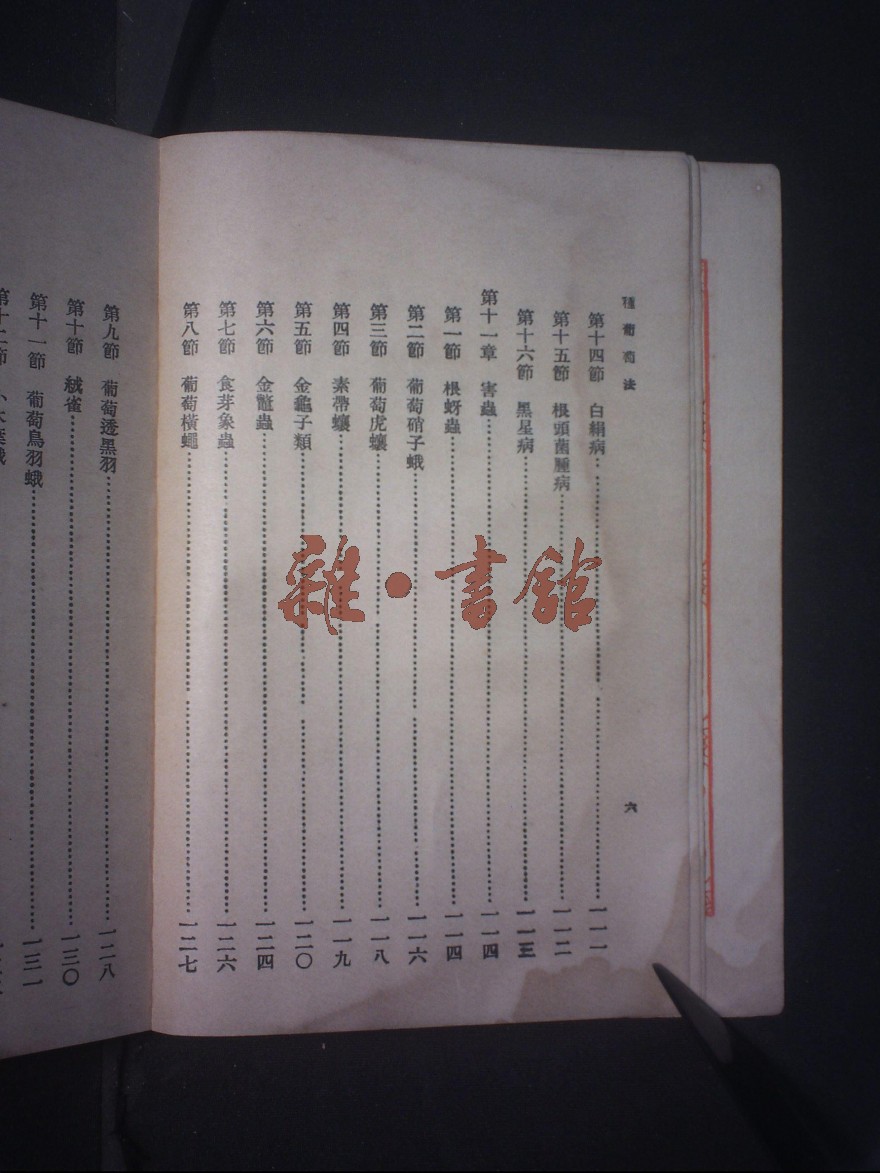 種葡萄法
六
第十四節 白絹病 一一一
第十五節 根頭菌腫病 一一二
第十六節 黑星病 一一三
第十一章 害蟲 一一四
第一節 根蚜蟲 一一四
第二節 葡萄硝子蛾 一一六
第三節 葡萄虎蠰 一一八
第四節 素帶蠰 一一九
第五節 金龜子類 一二〇
第六節 金鼈蟲 一二四
第七節 食芽象蟲 一二六
第八節 葡萄橫蠅 一二七
第九節 葡萄透黑羽 一二八
第十節 絨雀 一三〇
第十一節 葡萄鳥羽蛾 一三一
第十二節
雜·書館